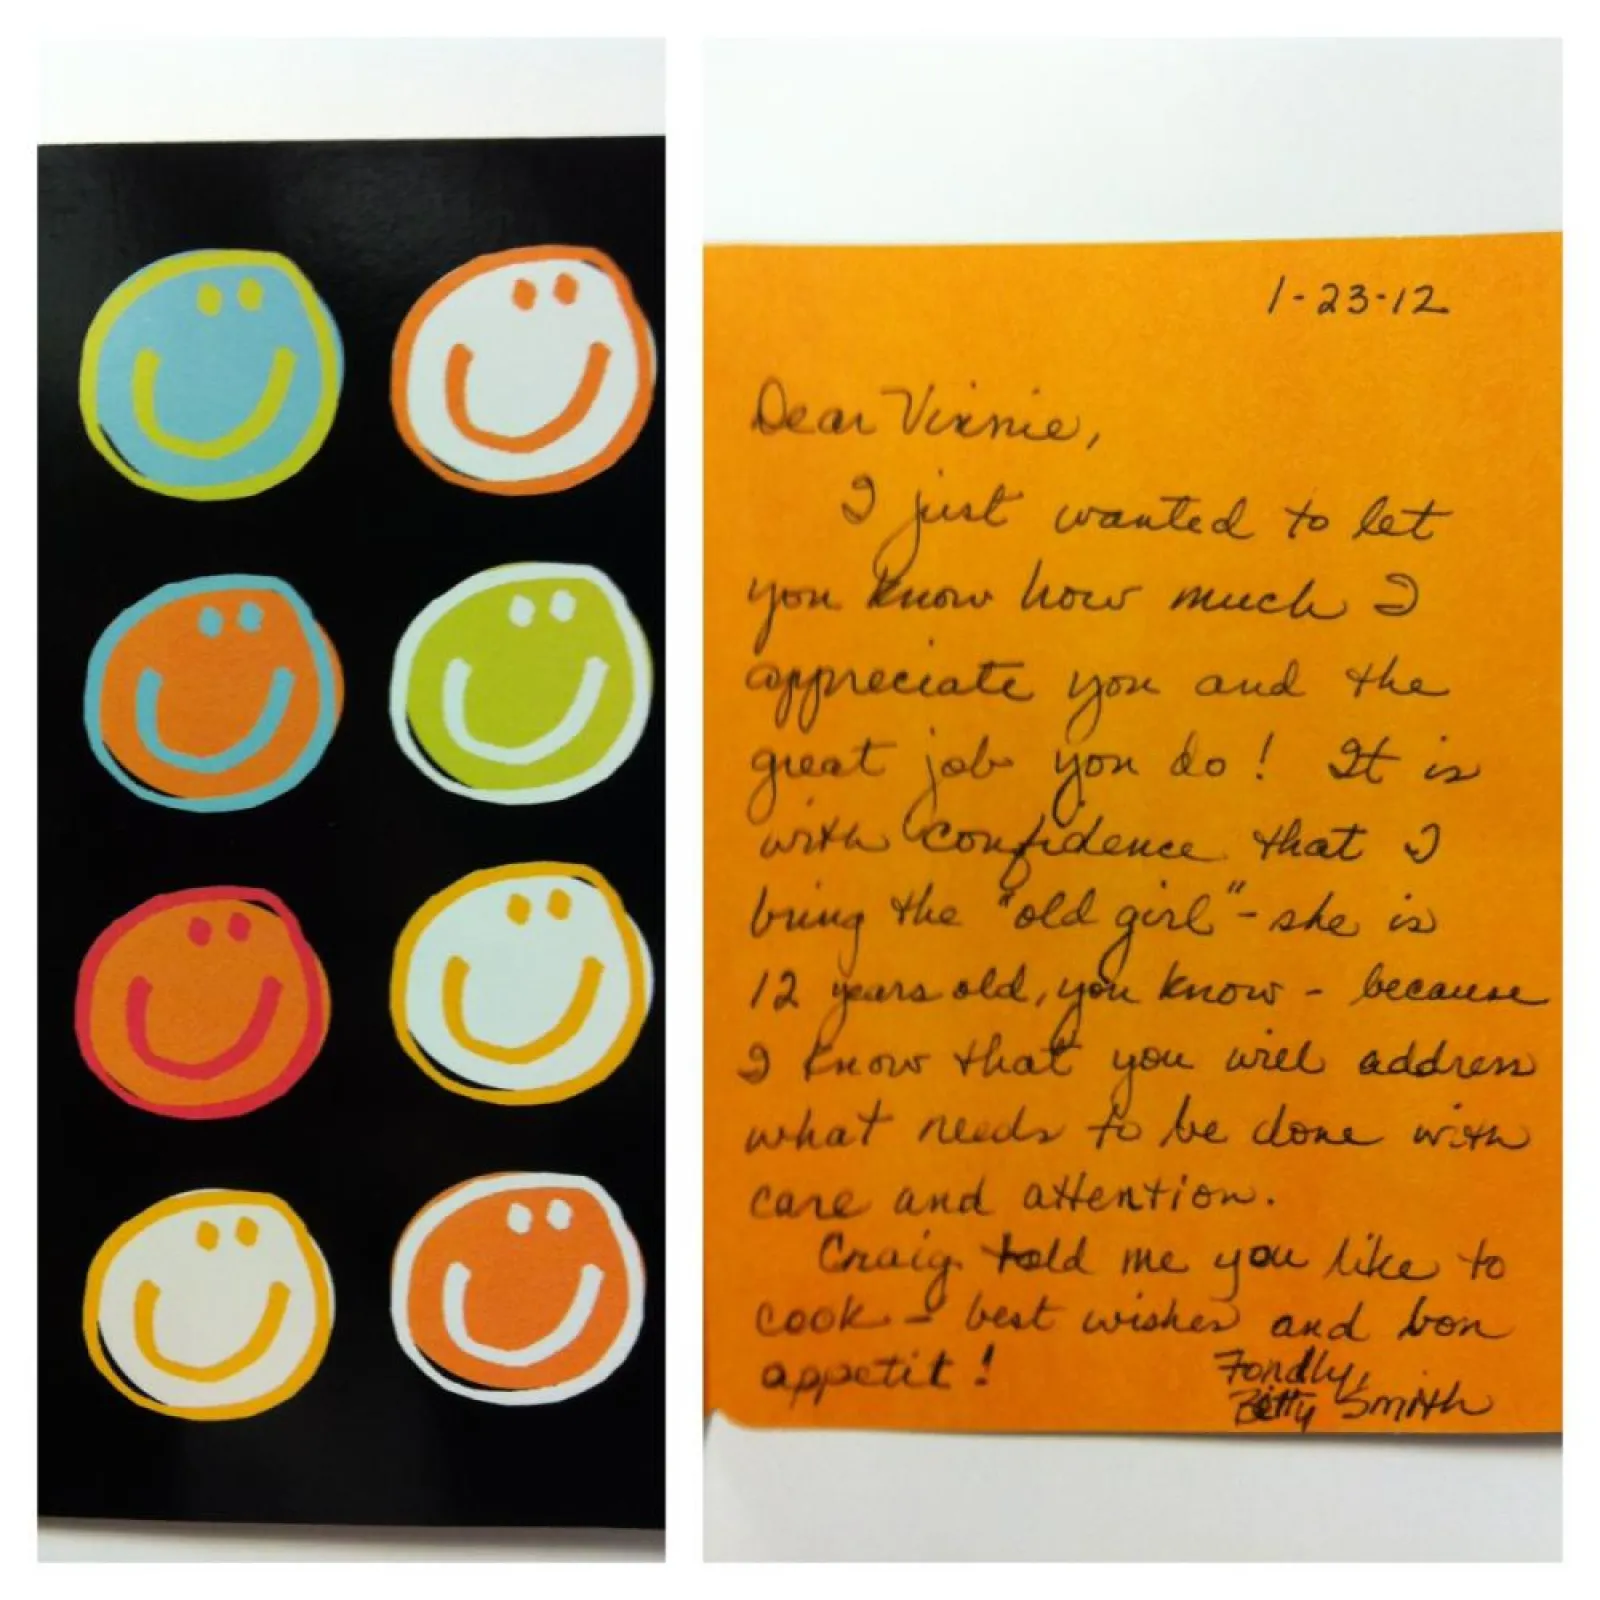 1-23-12
Dear Vinnie,
I just wanted to let
you know how much I
appreciate you and the
great job you do! It is
with confidence that I
bring the "old girl" - she is
12 years old, you know - because
I know that you will address
what needs to be done with
care and attention.
Craig told me you like to
cook - best wishes and bon
appetit!
Fondly,
Betty Smith